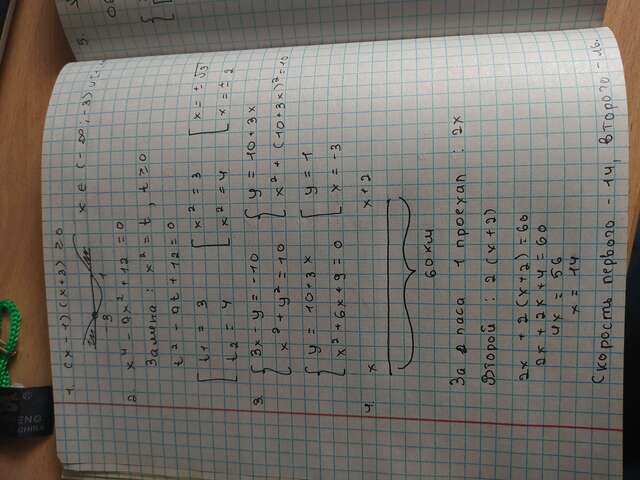 1. (x-1)(x+3) ≥ 0
3 1
x ∈ (-∞; -3)
2. x⁴ - 9x² + 12 = 0
Замена: x² = t, t ≥ 0
t² - 9t + 12 = 0
[ t₁ = 3 [ x² = 3 [ x = ±√3
t₂ = 4 x² = 4 x = ±2
3. { 3x - y = -10 { y = 10 + 3x
x² + y² = 10 x² + (10 + 3x)² = 10
{ y = 10 + 3x { y = 1
x² + 6x + 9 = 0 x = -3
4. x x+2
60 км
За 2 часа 1 проехал : 2x
Второй : 2(x+2)
2x + 2(x+2) = 60
2x + 2x + 4 = 60
4x = 56
x = 14
Скорость первого - 14, второго - 16.
5.